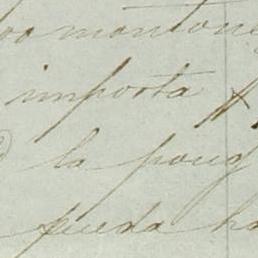 montone
importa
la pong
pueda ha